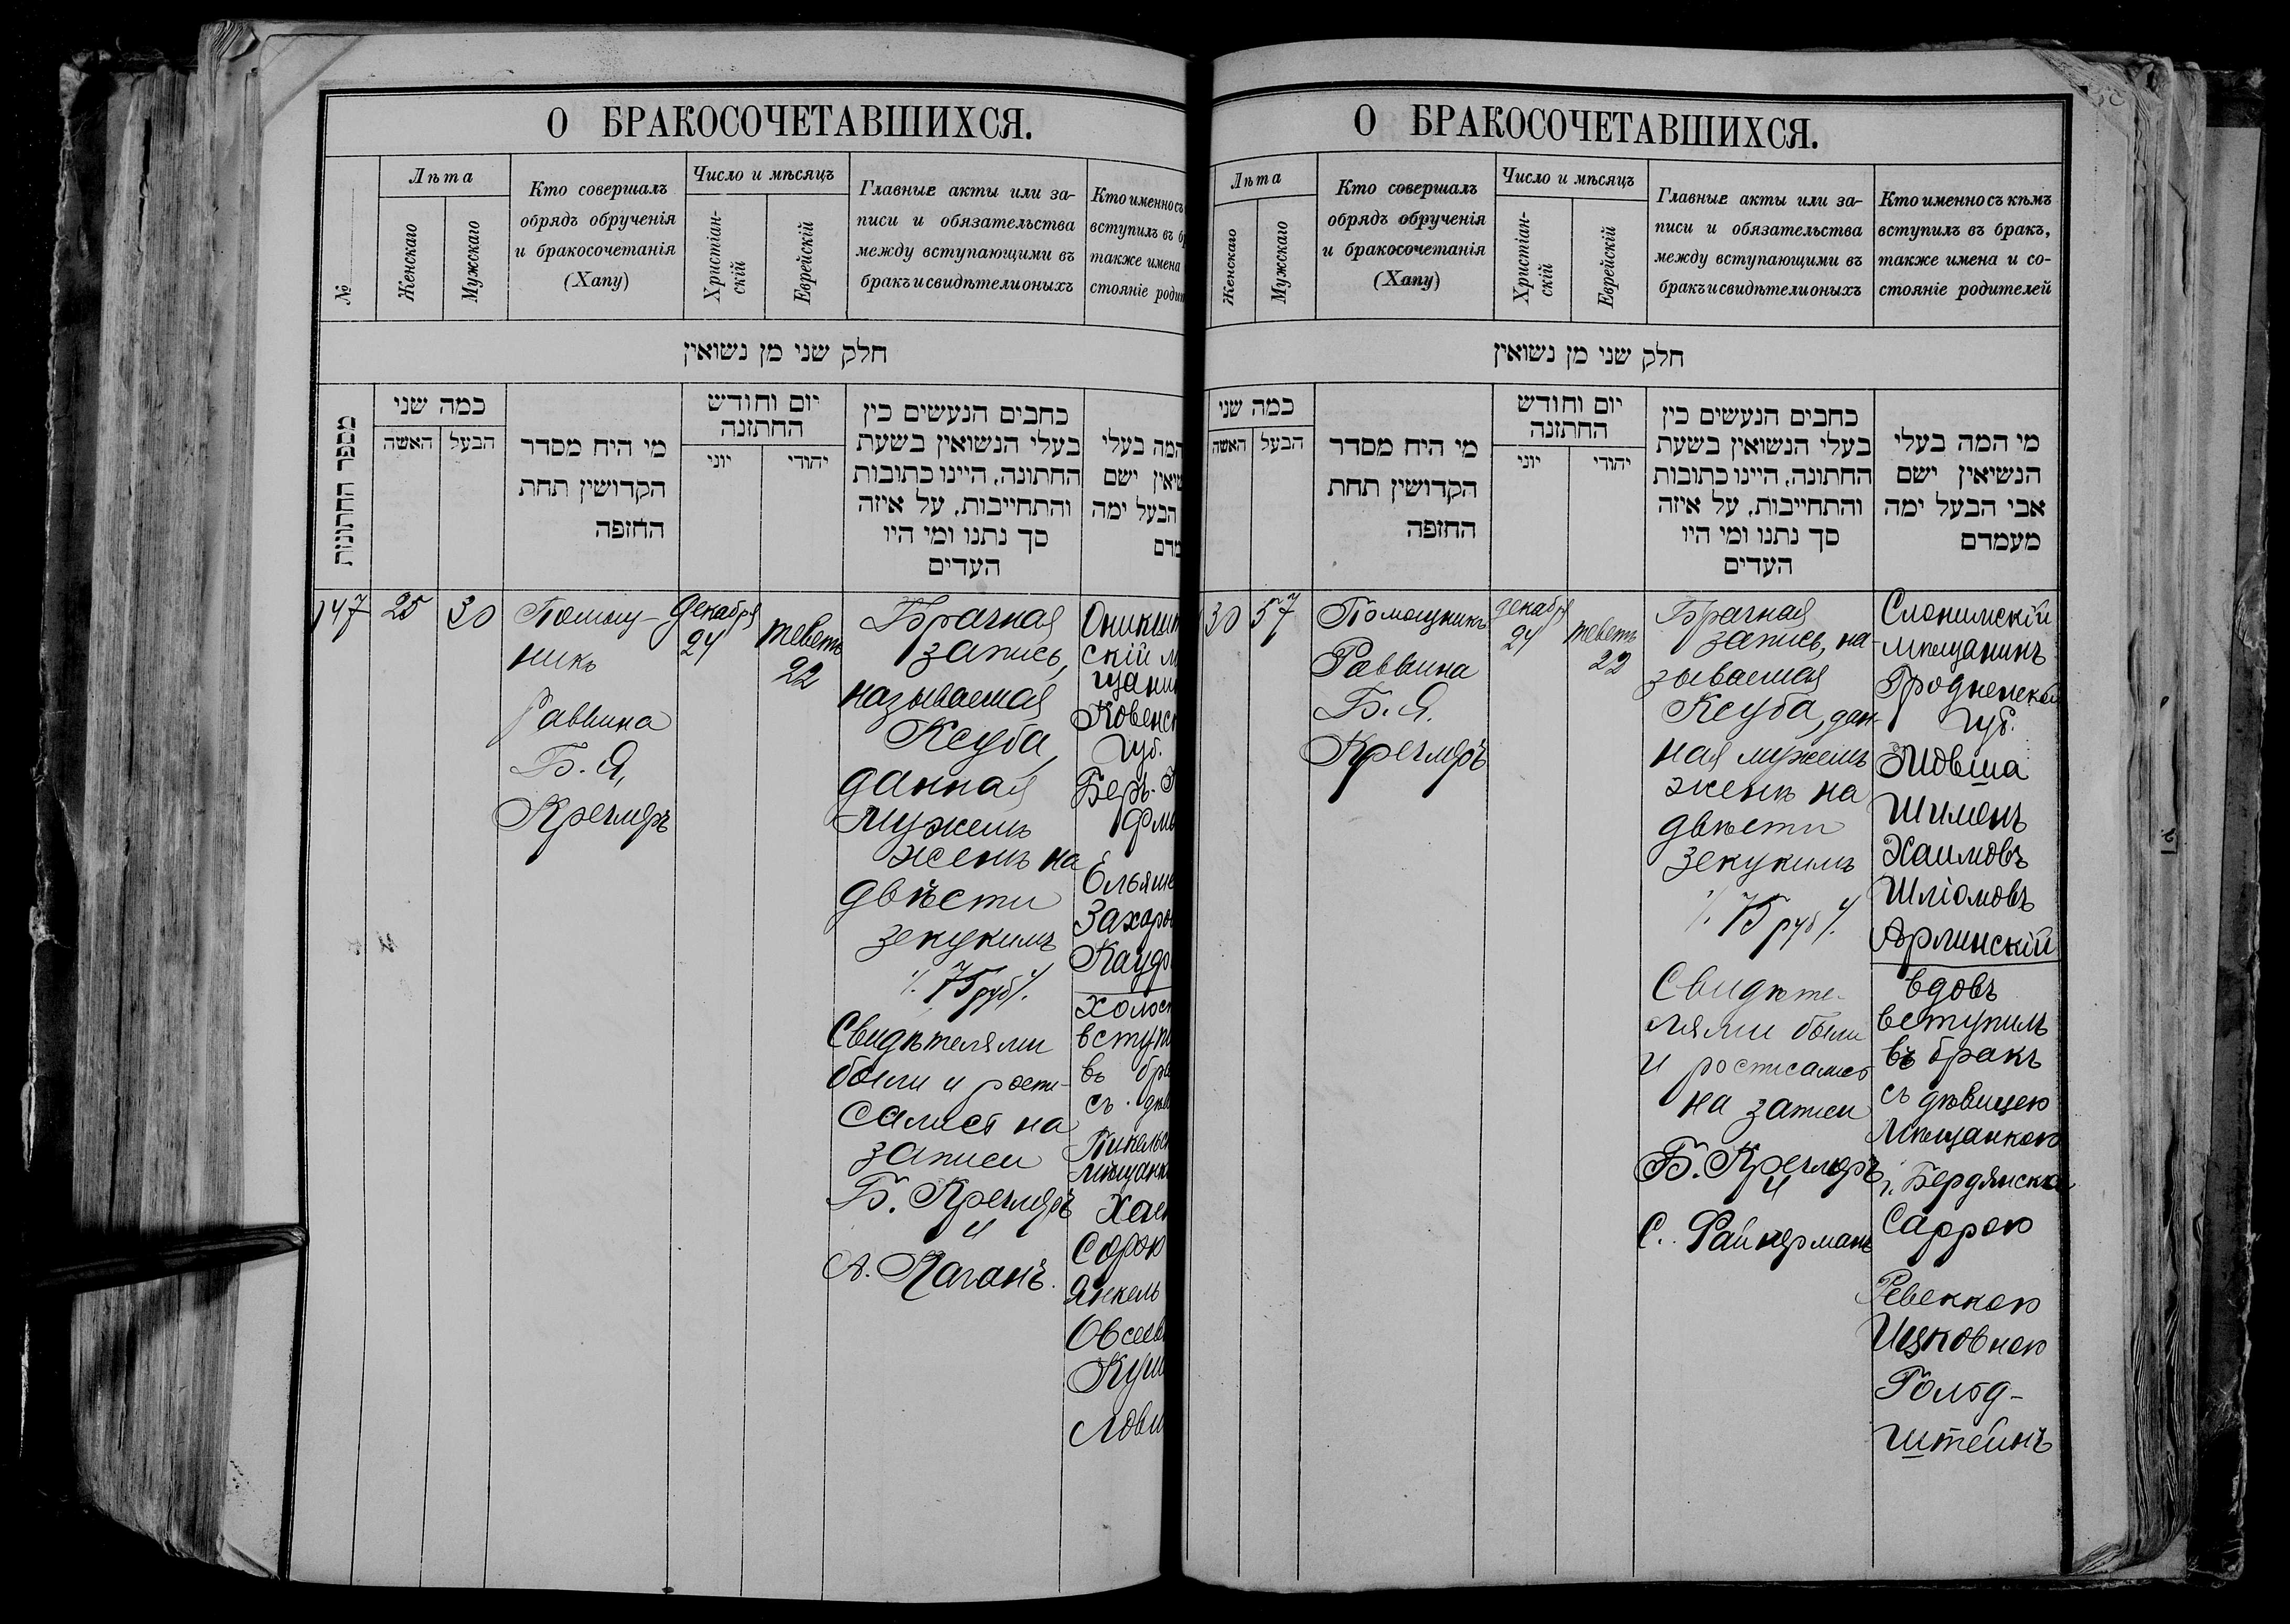 О БРАКОСОЧЕТАВШИХСЯ.
№
Лѣта
Женскаго
Мужскаго
Кто совершалъ
обрядъ обрученія
и бракосочетанія
(Хапу)
Число и мѣсяцъ
Христіан-
скій
Еврейскій
Главные акты или за-
писи и обязательства
между вступающими въ
бракъ и свидѣтели оныхъ
Кто именно съ
вступилъ въ б
также имена
стояніе роди
חלק שני מן נשואין
מספר החתונות
כמה שני
האשה
הבעל
מי היח מסדר
הקדושין תחת
החזפה
יום וחודש
החתזנה
יוני
יהודי
כחבים הנעשים כין
בעלי הנשואין בשעת
החתונה, היינו כתובות
והתחייבות, על איזה
סך נתנו ומי היו
העדים
המה בעלי
שיאין ישם
הבעל ימה
מדם
147
25
30
Помощ-
никъ
Раввина
Б. Я,
Кречмеръ
Декабря
24
теветъ
22
Брачная
запись,
называемая
Ксуба,
данная
мужемъ
женѣ на
двѣсти
зекукимъ
./. 75 руб ./.
Свидѣтелями
были и роспи-
сались на
записи
Б. Кречмеръ
и
А. Каганъ.
Оникшт
скій м
щанин
Ковенск
губ.
Беръ-
Ельяше
Захаро
Холост
вступи
въ бра
съ дѣв
мѣщанк
Янкель
О БРАКОСОЧЕТАВШИХСЯ.
Лѣта
Женскаго
Мужскаго
Кто совершалъ
обрядъ обрученія
и бракосочетанія
(Хапу)
Число и мѣсяцъ
Христіан-
скій
Еврейскій
Главные акты или за-
писи и обязательства
между вступающими въ
бракъ и свидѣтели оныхъ
Кто именно съ кѣмъ
вступилъ въ бракъ,
также имена и со-
стояніе родителей
חלק שני מן נשואין
כמה שני
האשה
הבעל
מי היח מסדר
הקדושין תחת
החזפה
יום וחודש
החתזנה
יוני
יהודי
כחבים הנעשים כין
בעלי הנשואין בשעת
החתונה, היינו כתובות
והתחייבות, על איזה
סך נתנו ומי היו
העדים
מי המה בעלי
הנשיאין ישם
אבי הבעל ימה
מעמדם
30
57
Помощникъ
Раввина
Б. Я.
Кречмеръ
декабря
24
теветъ
22
Брачная
запись, на-
зываемая
Ксуба, дан-
ная мужемъ
женѣ на
двѣсти
зекукимъ
./. 75 руб ./.
Свидѣте-
лями были
и росписались
на записи
Б. Кречмеръ
и
С. Файнерманъ
Слонимскій
мѣщанинъ
Гродненской
губ.
Шименъ
Хаимовъ
Шліомовъ
Арлинскій
вдовъ
вступилъ
въ бракъ
съ дѣвицею
Мѣщанкою
г. Бердянска
Саррою
Ревеккою
Ицковною
Гольд-
штейнъ